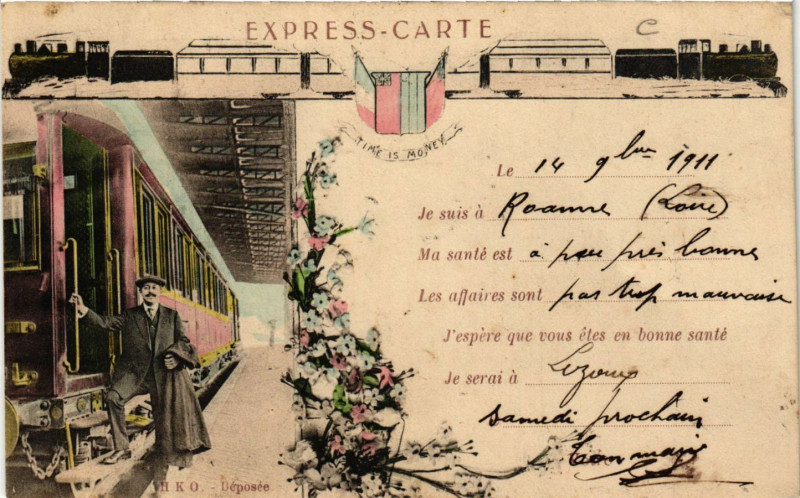 EXPRESS-CARTE
C
TIME IS MONEY
Le 14 9bre 1911
Je suis à Roanne (Loire)
Ma santé est à peu près bonne
Les affaires sont pas trop mauvaise
J'espère que vous êtes en bonne santé
Je serai à Lezoux
Samedi prochain
Ton
H K O - Déposée